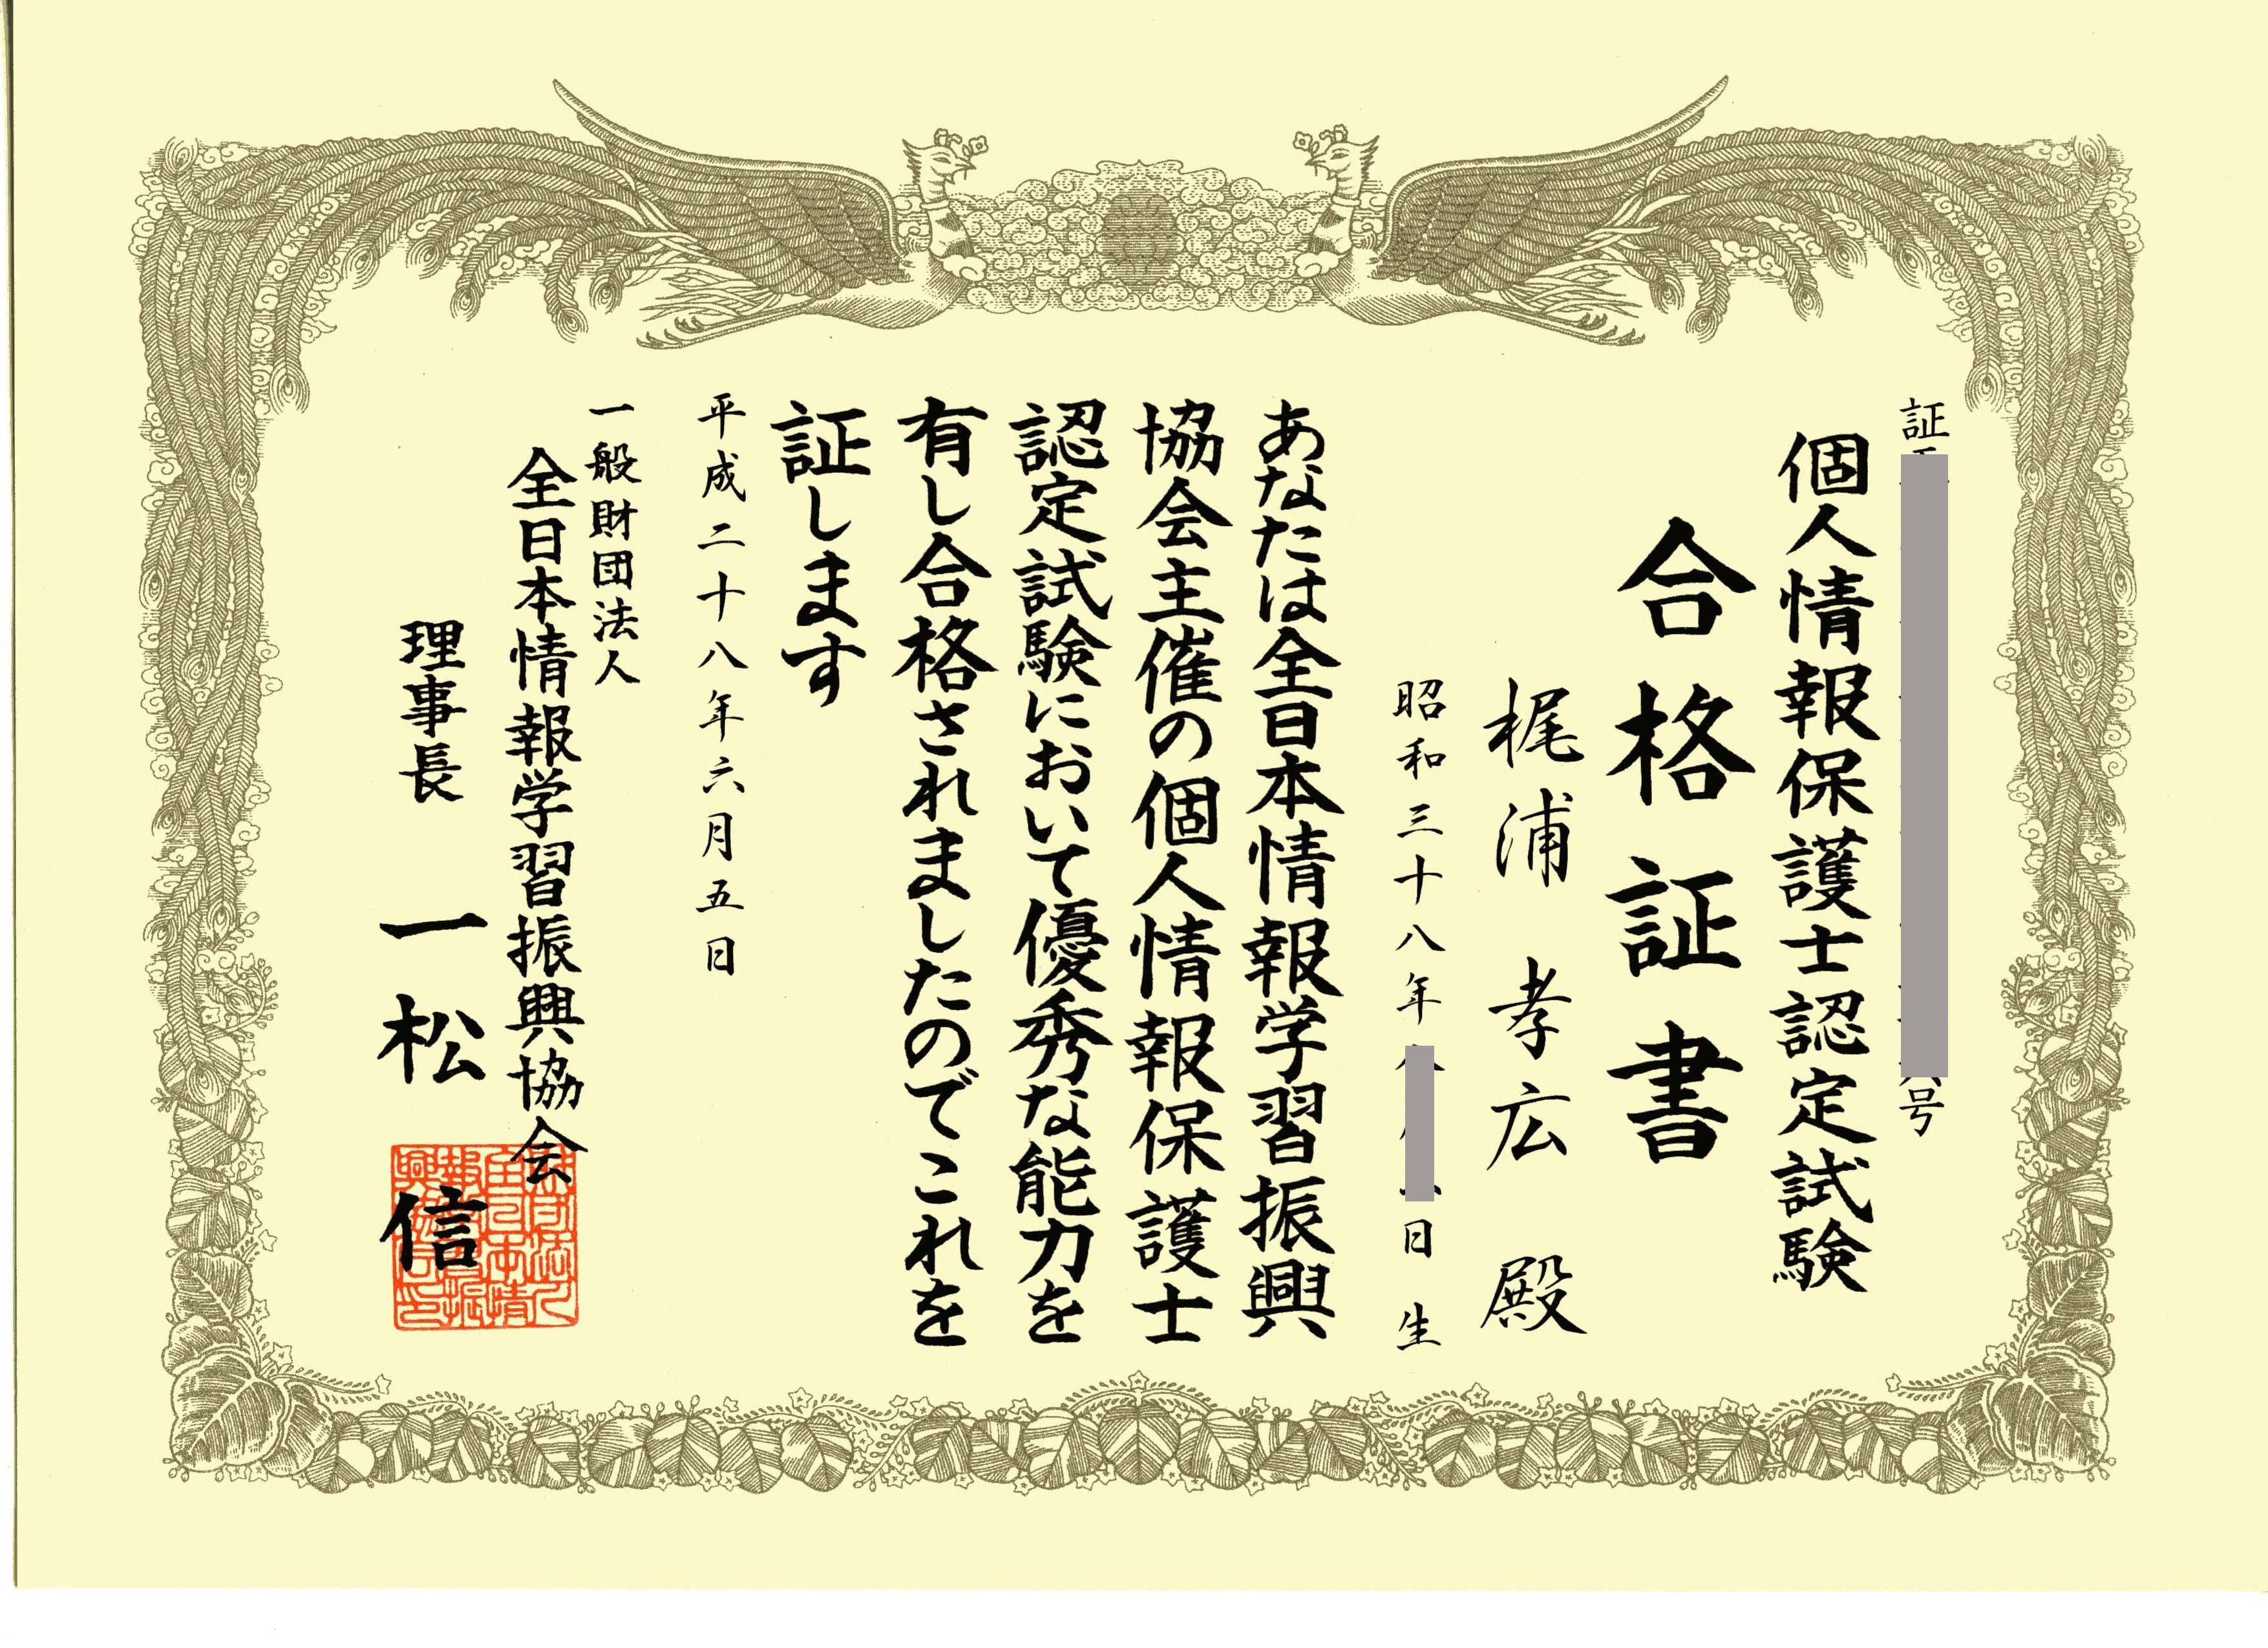 証
号
個人情報保護士認定試験
合格証書
梶浦 孝広 殿
昭和三十八年
日 生
あなたは全日本情報学習振興
協会主催の個人情報保護士
認定試験において優秀な能力を
有し合格されましたのでこれを
証します
平成二十八年六月五日
一般財団法人
全日本情報学習振興協会
理事長 一松 信